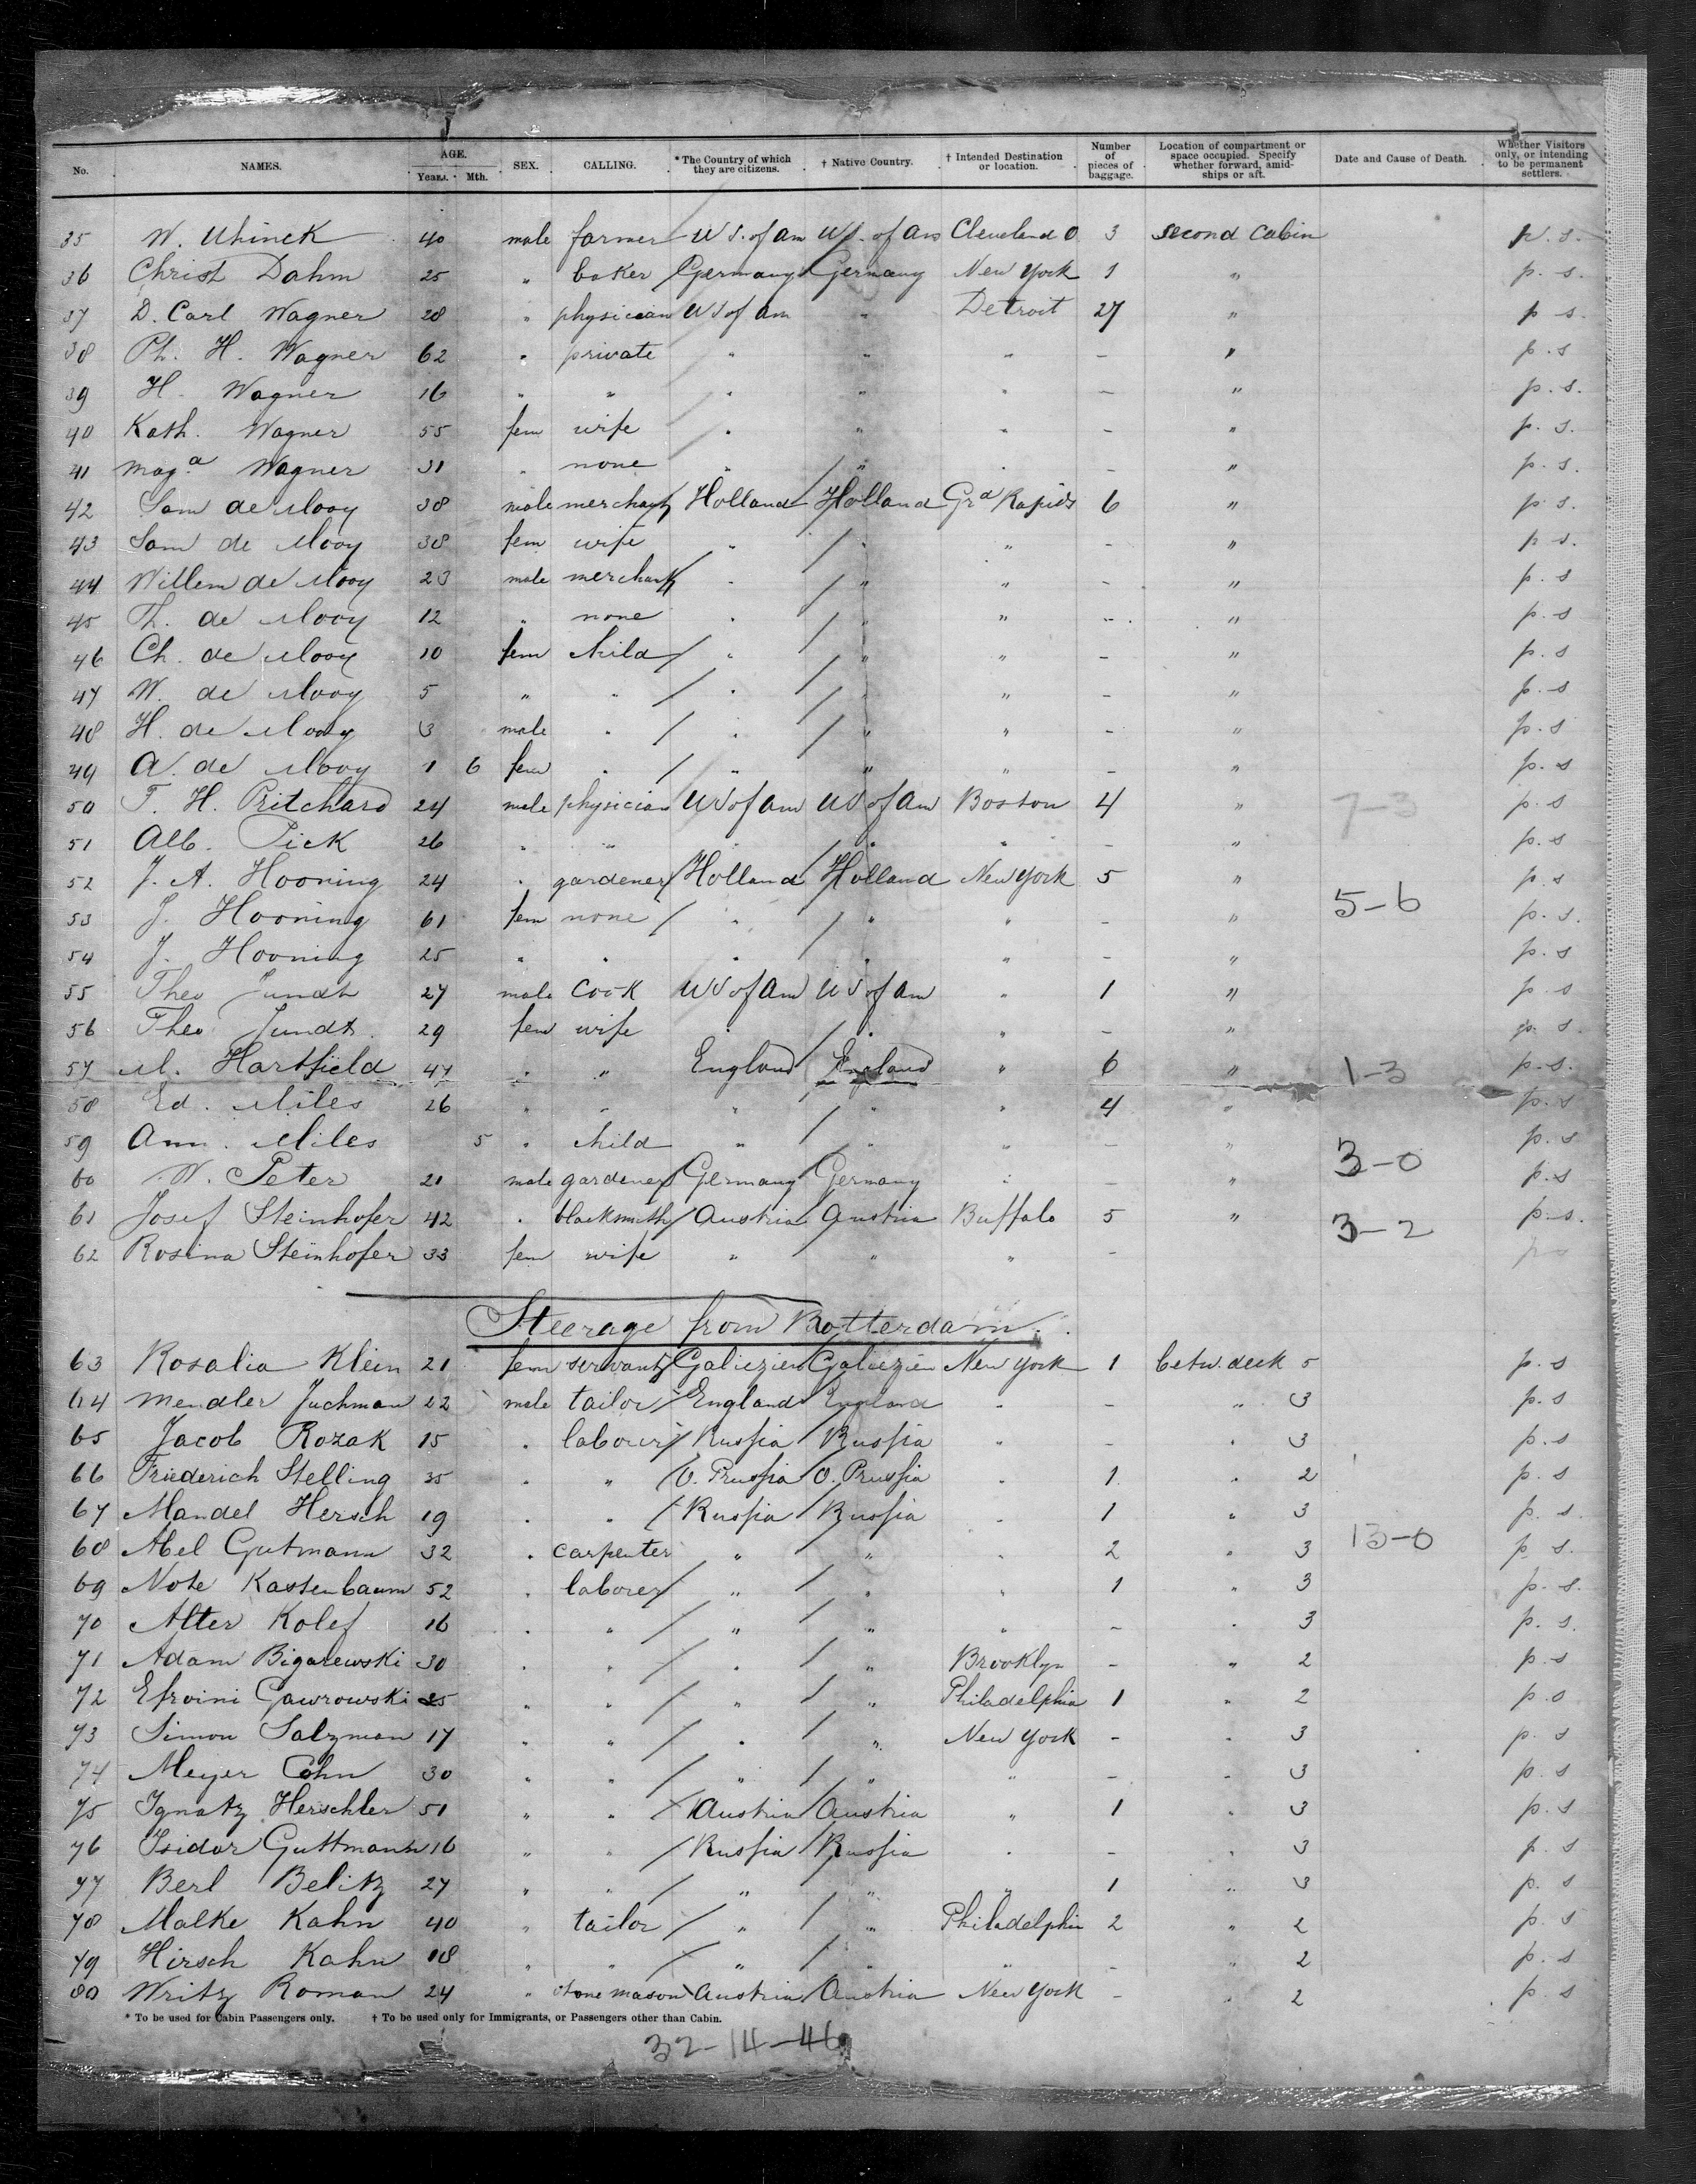 No. NAMES. AGE. Years. Mth. SEX. CALLING. * The Country of which they are citizens. † Native Country. † Intended Destination or location. Number of pieces of baggage. Location of compartment or space occupied. Specify whether forward, amidships or aft. Date and Cause of Death. Whether Visitors only, or intending to be permanent settlers.
35 W. Uhinck 40 male farmer U S. of am U S. of am Cleveland O 3 second Cabin p. s.
36 Christ Dahm 25 " baker Germany Germany New York 1 " p. s.
37 D. Carl Wagner 28 " physician U S of am " Detroit 27 " p s.
38 Ph. H. Wagner 62 " private " " " - " p. s
39 H. Wagner 16 " " " " " - " p. s.
40 Kath. Wagner 55 fem wife " " " - " p. s.
41 Mag.a Wagner 31 " none " " " - " p. s.
42 Sam de Mooy 38 male merchant Holland Holland Grd Rapids 6 " p s.
43 Sam de Mooy 38 fem wife " " " - " p s.
44 Willem de Mooy 23 male merchant " " " - " p. s
45 Th. de Mooy 12 " none " " " - " p. s
46 Ch. de Mooy 10 fem child " " " - " p. s
47 W. de Mooy 5 " " " " " - " p. s
48 H. de Mooy 3 male " " " " - " p. s
49 A. de Mooy 1 6 fem " " " " - " p. s
50 T. H. Pritchard 24 male physician U S of am U S of am Boston 4 " 7-3 p. s
51 Alb. Pick 26 " " " " " - " p. s
52 J. A. Hooning 24 " gardener Holland Holland New York 5 " p. s
53 J. Hooning 61 fem none " " " - " 5-6 p. s.
54 J. Hooning 25 " " " " " - " p. s
55 Theo Jundt 27 male cook U S of am U S of am " 1 " p. s
56 Theo Jundt 29 fem wife " " " - " p. s.
57 M. Hartfield 47 " " England England " 6 " 1-3 p. s.
58 Ed. Miles 26 " " " " " 4 " p. s
59 Ann. Miles 5 " child " " " - " p. s
60 W. Peter 21 male gardener Germany Germany " - " 3-0 p. s
61 Josef Steinhofer 42 " blacksmith Austria Austria Buffalo 5 " 3-2 p. s.
62 Rosina Steinhofer 33 fem wife " " " - p s
Steerage from Rotterdam.
63 Rosalia Klein 21 fem servant Galiezien Galiezien New York 1 betw. deck 5 p. s
64 Mendler Juchman 22 male tailor England England " - " 3 p. s
65 Jacob Rozak 15 " laborer Russia Russia " - " 3 p. s
66 Friederich Stelling 35 " " O. Prussia O. Prussia " 1 " 2 p. s
67 Mandel Hersch 19 " " Russia Russia " 1 " 3 p. s.
68 Abel Gutmann 32 " carpenter " " " 2 " 3 13-0 p. s.
69 Note Kastenbaum 52 " laborer " " " 1 " 3 p. s.
70 Alter Kolef 16 " " " " " - " 3 p. s.
71 Adam Bigarewski 30 " " " " Brooklyn - " 2 p. s
72 Efroini Gawrowski 25 " " " " Philadelphia 1 " 2 p. s
73 Simon Salzman 17 " " " " New York - " 3 p. s
74 Meyer Cohn 30 " " " " " - " 3 p. s
75 Ignatz Herschler 51 " " Austria Austria " 1 " 3 p. s
76 Isidor Guttmann 16 " " Russia Russia " - " 3 p. s
77 Berl Belitz 27 " " " " " 1 " 3 p. s
78 Malke Kahn 40 " tailor " " Philadelphia 2 " 2 p. s
79 Hirsch Kahn 18 " " " " " - " 2 p. s
80 Writz Roman 24 " stone mason Austria Austria New York - " 2 p. s
* To be used for Cabin Passengers only. † To be used only for Immigrants, or Passengers other than Cabin.
32-14-46